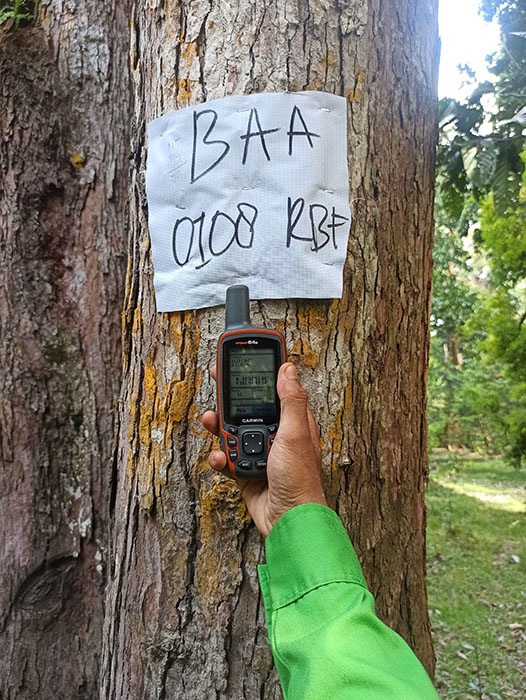 BAA
0100 RBF
GARMIN